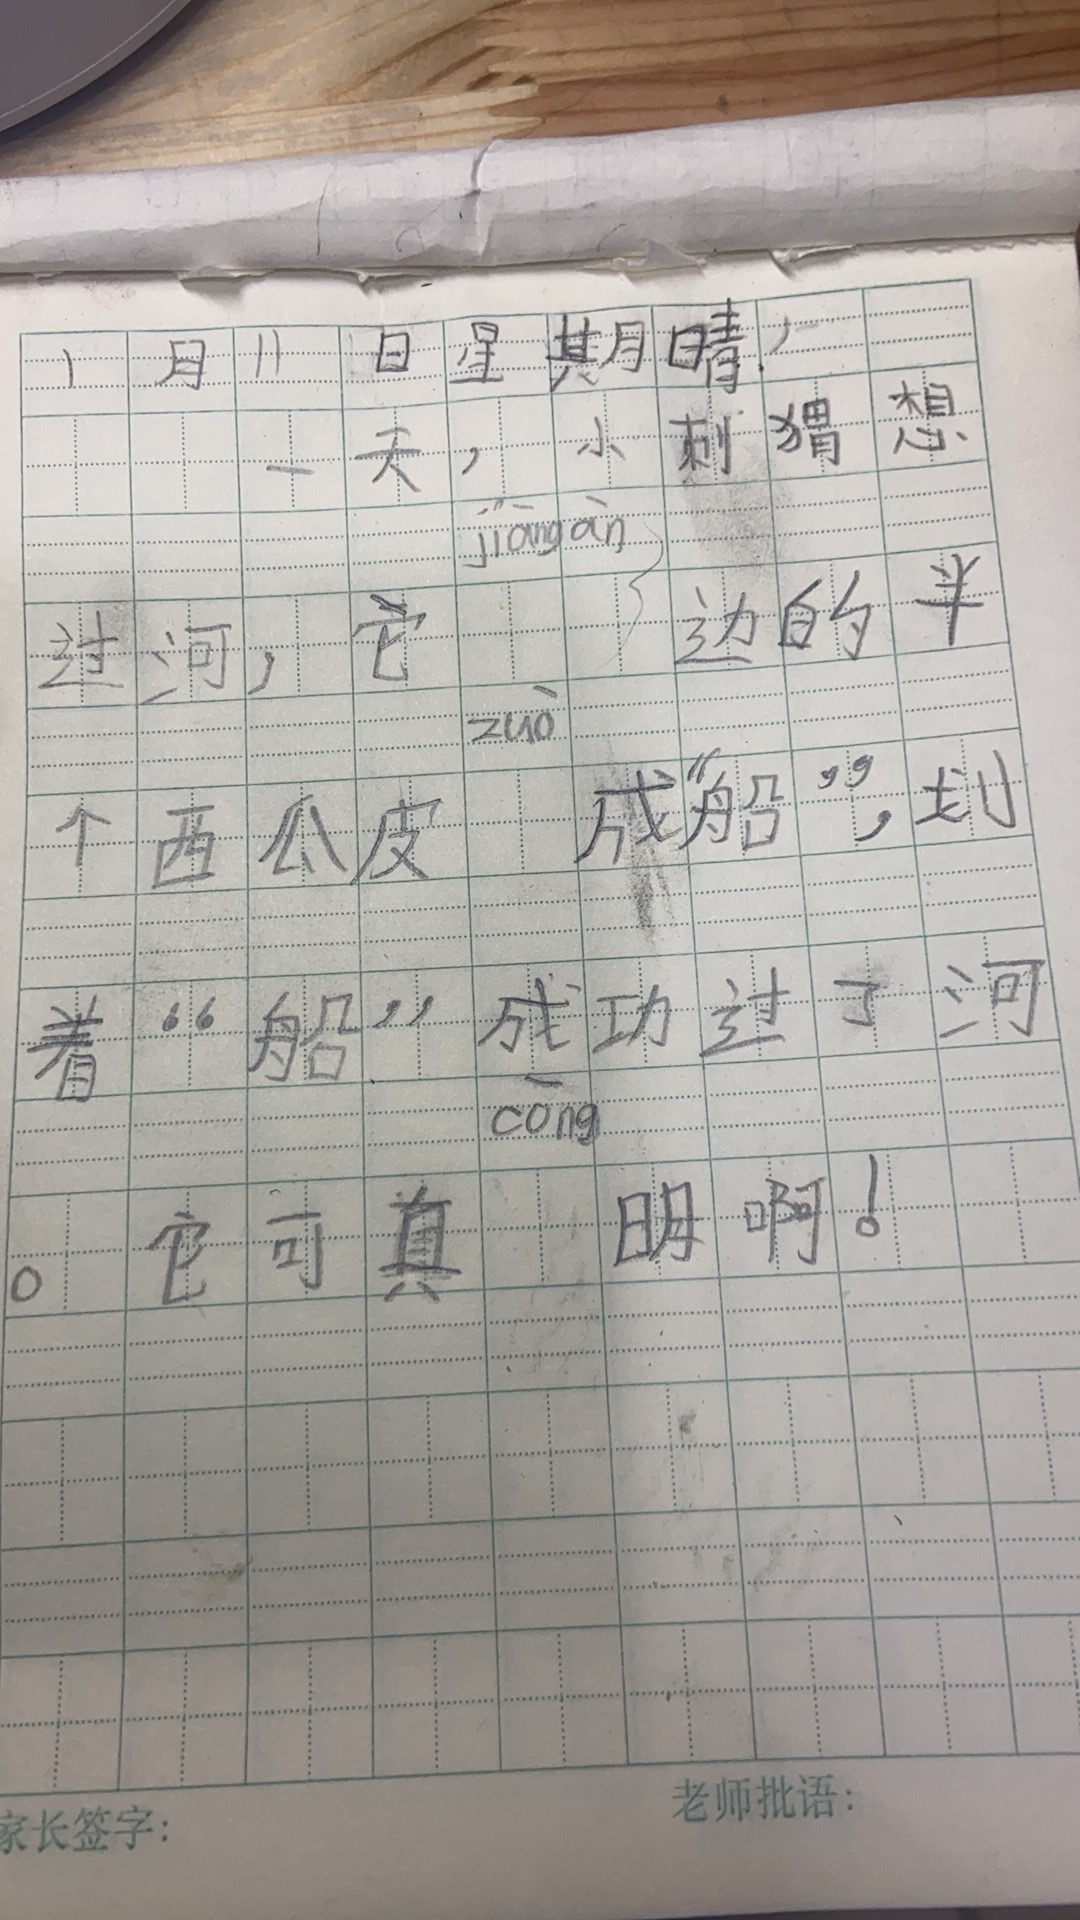 1月11日星期晴
一天，小刺猬想
jiāngàn
过河，它边的半
zuò
个西瓜皮成“船”，划
着“船”成功过了河
cōng
。它可真明啊！
家长签字：
老师批语：